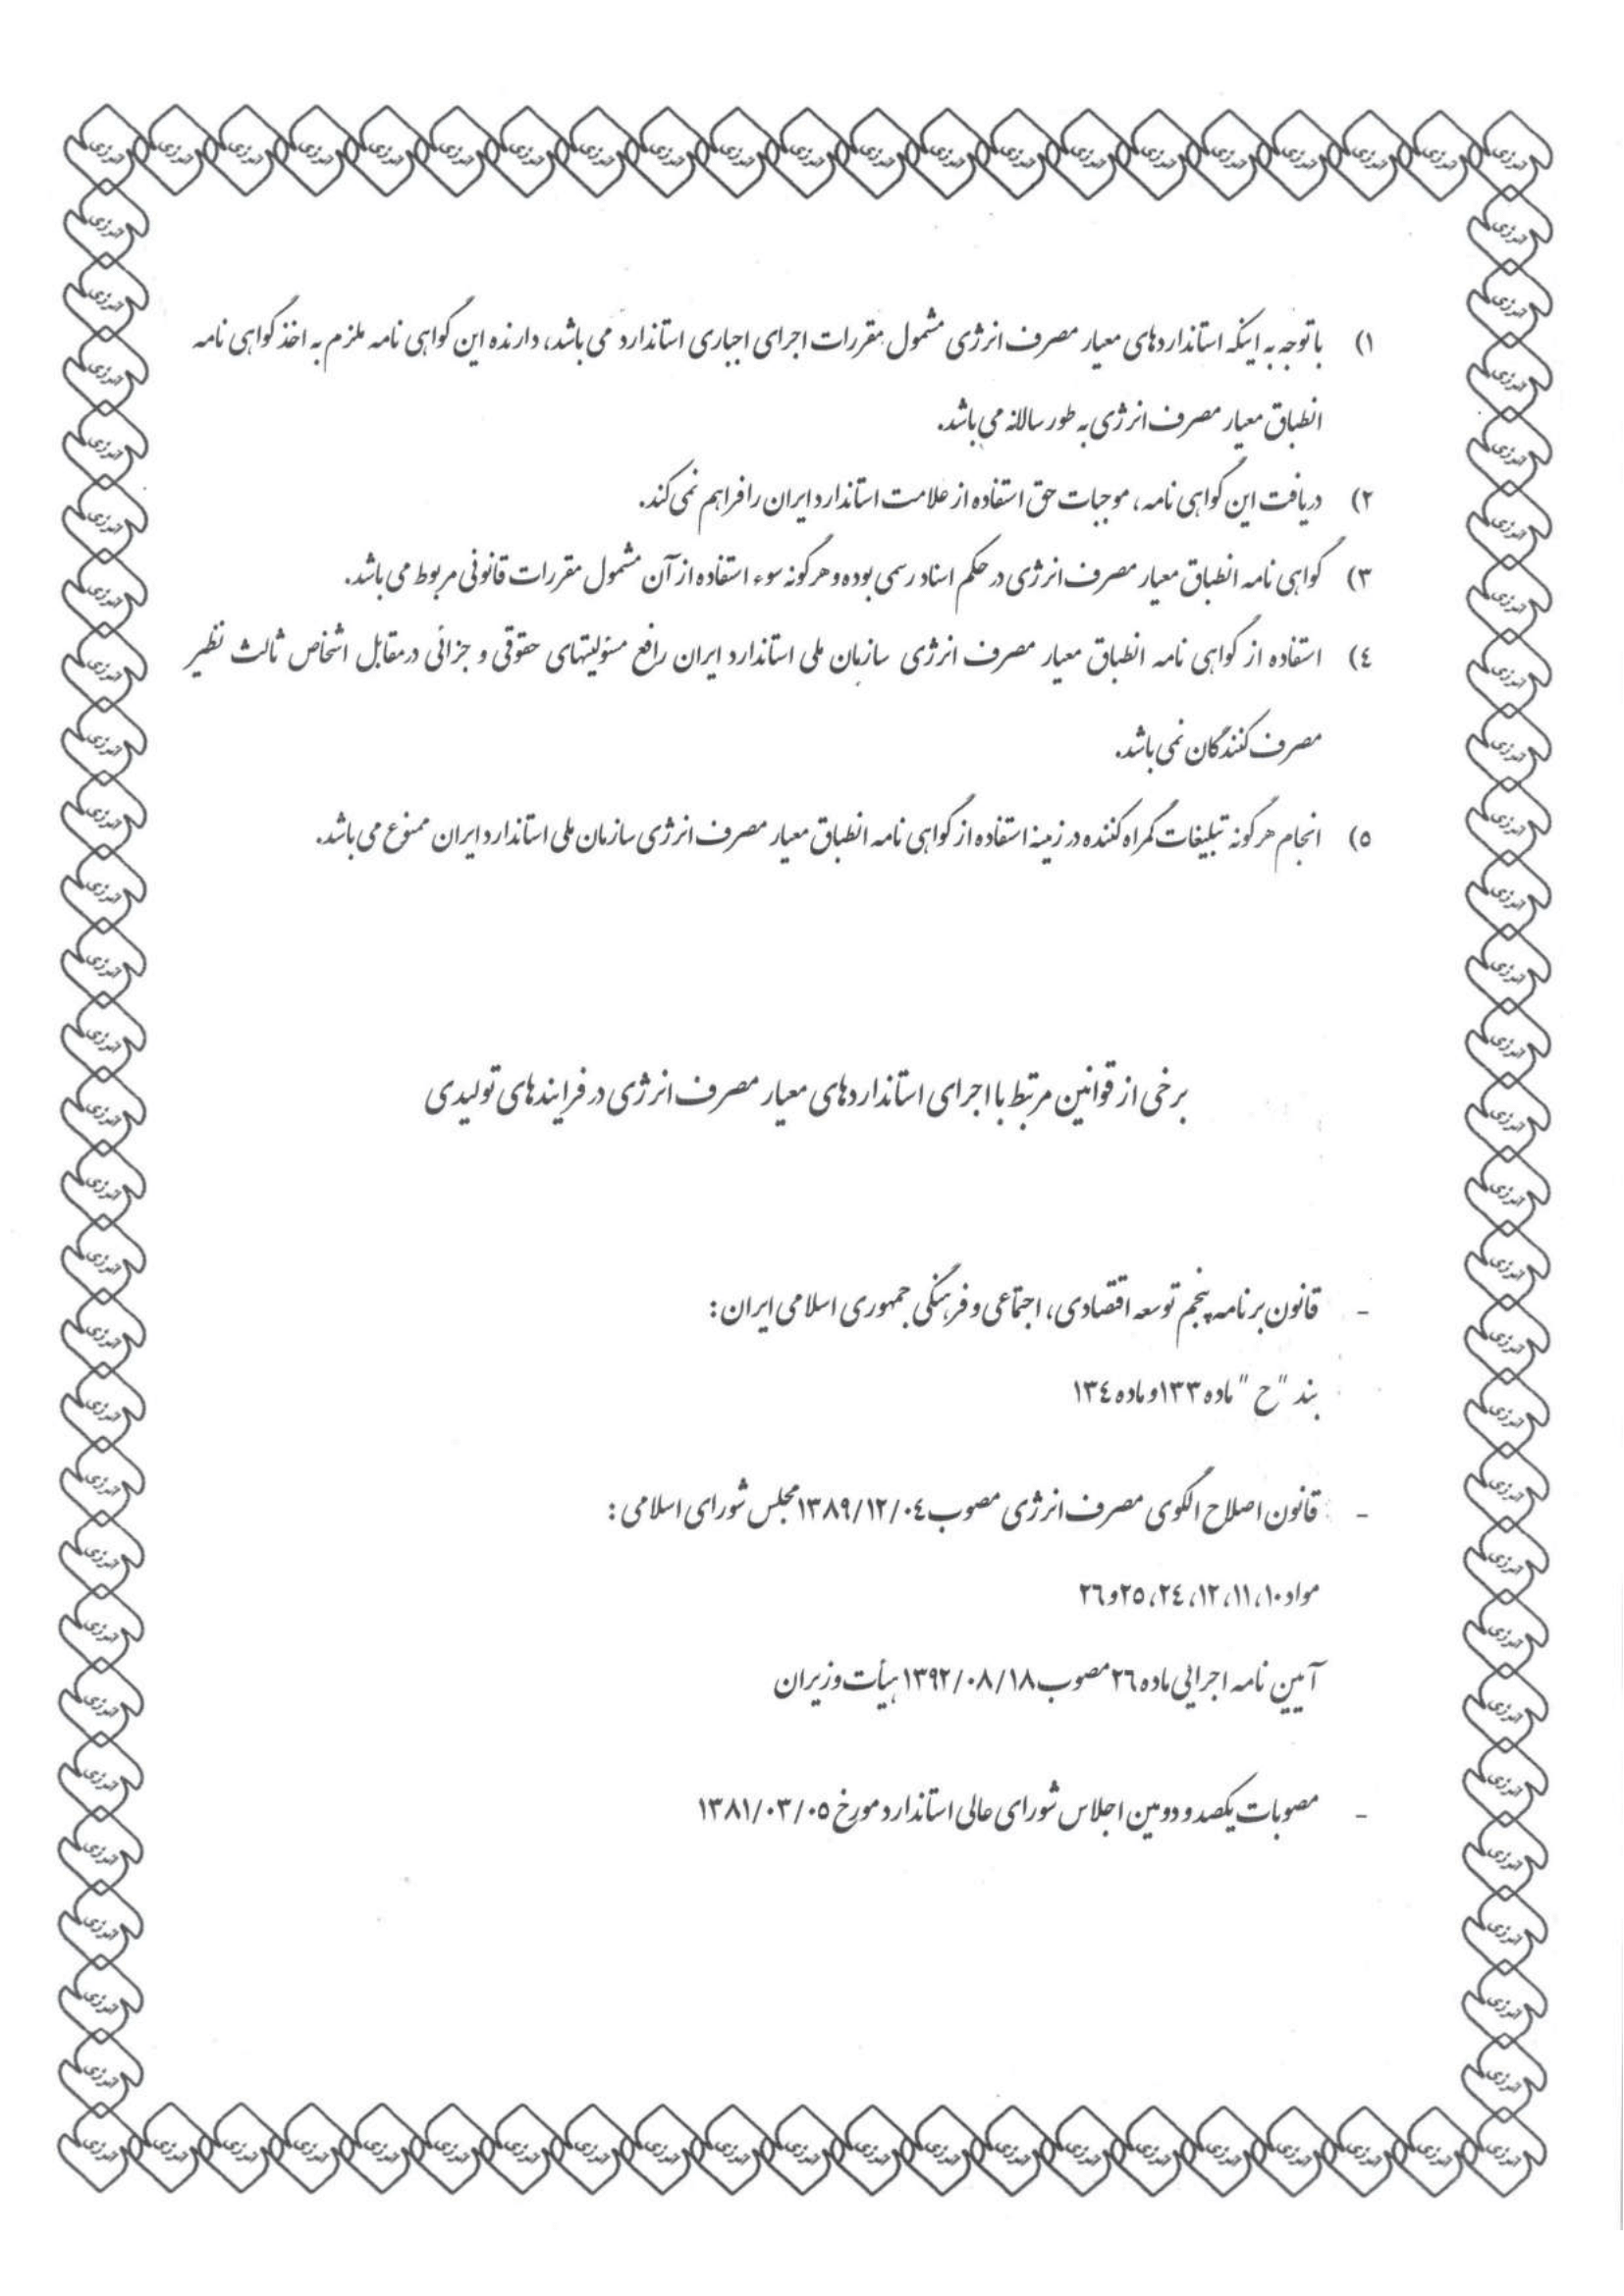 ۱) با توجه به اینکه استانداردهای معیار مصرف انرژی مشمول مقررات اجرای اجباری استاندارد می باشد، دارنده این گواهی نامه ملزم به اخذ گواهی نامه
انطباق معیار مصرف انرژی به طور سالانه می باشد.
۲) دریافت این گواهی نامه، موجبات حق استفاده از علامت استاندارد ایران را فراهم نمی کند.
۳) گواهی نامه انطباق معیار مصرف انرژی در حکم اسناد رسمی بوده و هرگونه سوء استفاده از آن مشمول مقررات قانونی مربوط می باشد.
٤) استفاده از گواهی نامه انطباق معیار مصرف انرژی سازمان ملی استاندارد ایران رافع مسئولیتهای حقوقی و جزائی درمقابل اشخاص ثالث نظیر
مصرف کنندگان نمی باشد.
٥) انجام هرگونه تبلیغات گمراه کننده در زمینه استفاده از گواهی نامه انطباق معیار مصرف انرژی سازمان ملی استاندارد ایران ممنوع می باشد.
برخی از قوانین مرتبط با اجرای استانداردهای معیار مصرف انرژی در فرایندهای تولیدی
- قانون برنامه پنجم توسعه اقتصادی، اجتماعی و فرهنگی جمهوری اسلامی ایران:
بند "ح" ماده ۱۳۳ و ماده ۱۳٤
- قانون اصلاح الگوی مصرف انرژی مصوب ۱۳۸۹/۱۲/۰٤ مجلس شورای اسلامی:
مواد ۱۰، ۱۱، ۱۲، ۲٤، ۲٥ و ۲٦
آیین نامه اجرایی ماده ۲٦ مصوب ۱۳۹۲/۰۸/۱۸ هیأت وزیران
- مصوبات یکصد و دومین اجلاس شورای عالی استاندارد مورخ ۱۳۸۱/۰۳/۰٥